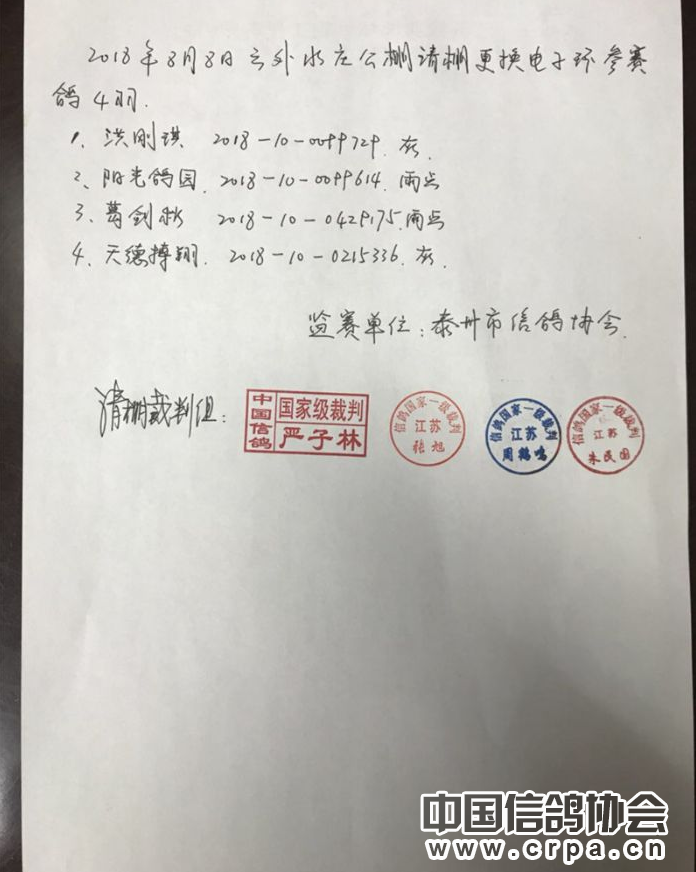 2018年8月8日云外水庄公棚请棚更换电子环参赛
鸽4羽.
1、洪刚琪 2018-10-0099729. 灰.
2、阳光鸽园. 2018-10-0099614. 雨点
3、葛剑秋 2018-10-0429175. 雨点
4、天德搏翔. 2018-10-0215336. 灰.
监赛单位:泰州市信鸽协会.
清棚裁判组:
中国信鸽 国家级裁判 严子林
信鸽国家一级裁判 江苏 张旭
信鸽国家一级裁判 江苏 周鹤鸣
信鸽国家一级裁判 江苏 朱民国
中国信鸽协会
www.crpa.cn